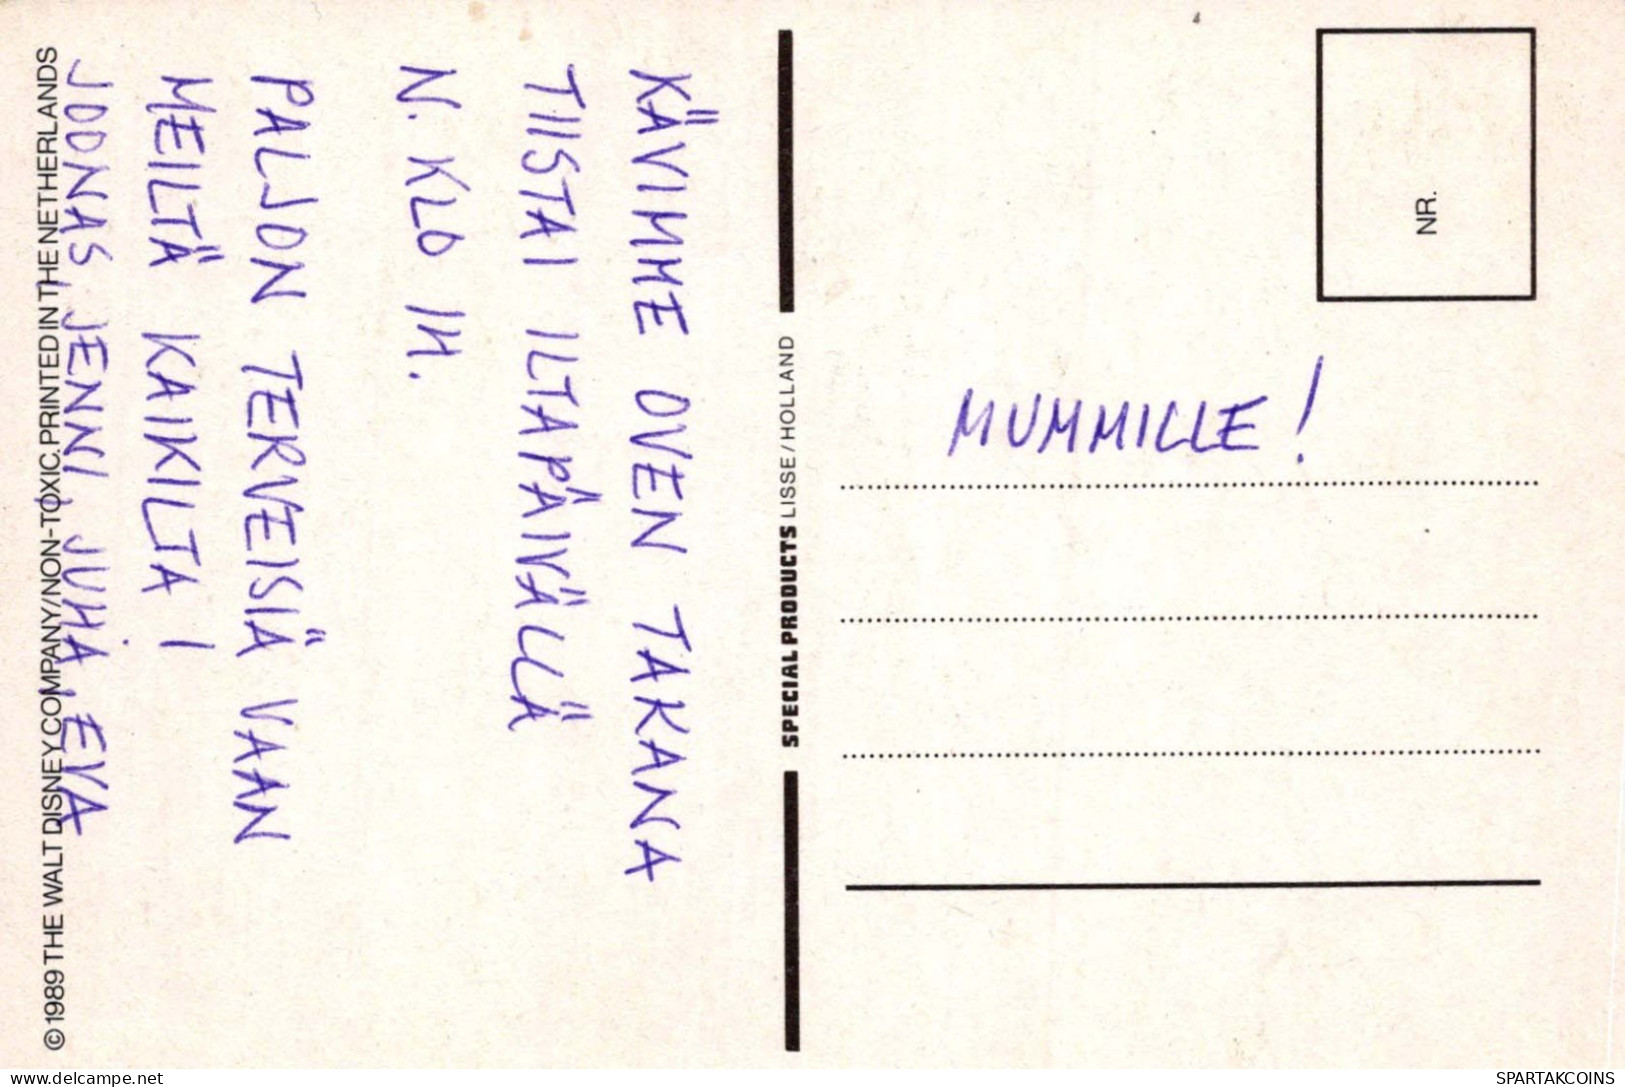 KÄVIMME OVEN TAKANA
TIISTAI ILTAPÄIVÄLLÄ
N. KLO 14.
PALJON TERVEISIÄ VAAN
MEILTÄ KAIKILTA !
JOONAS, JENNI, JUHA, EVA
©1989 THE WALT DISNEY COMPANY/NON-TOXIC. PRINTED IN THE NETHERLANDS
SPECIAL PRODUCTS LISSE/HOLLAND
NR.
MUMMILLE!
www.delcampe.net
SPARTAKCOINS